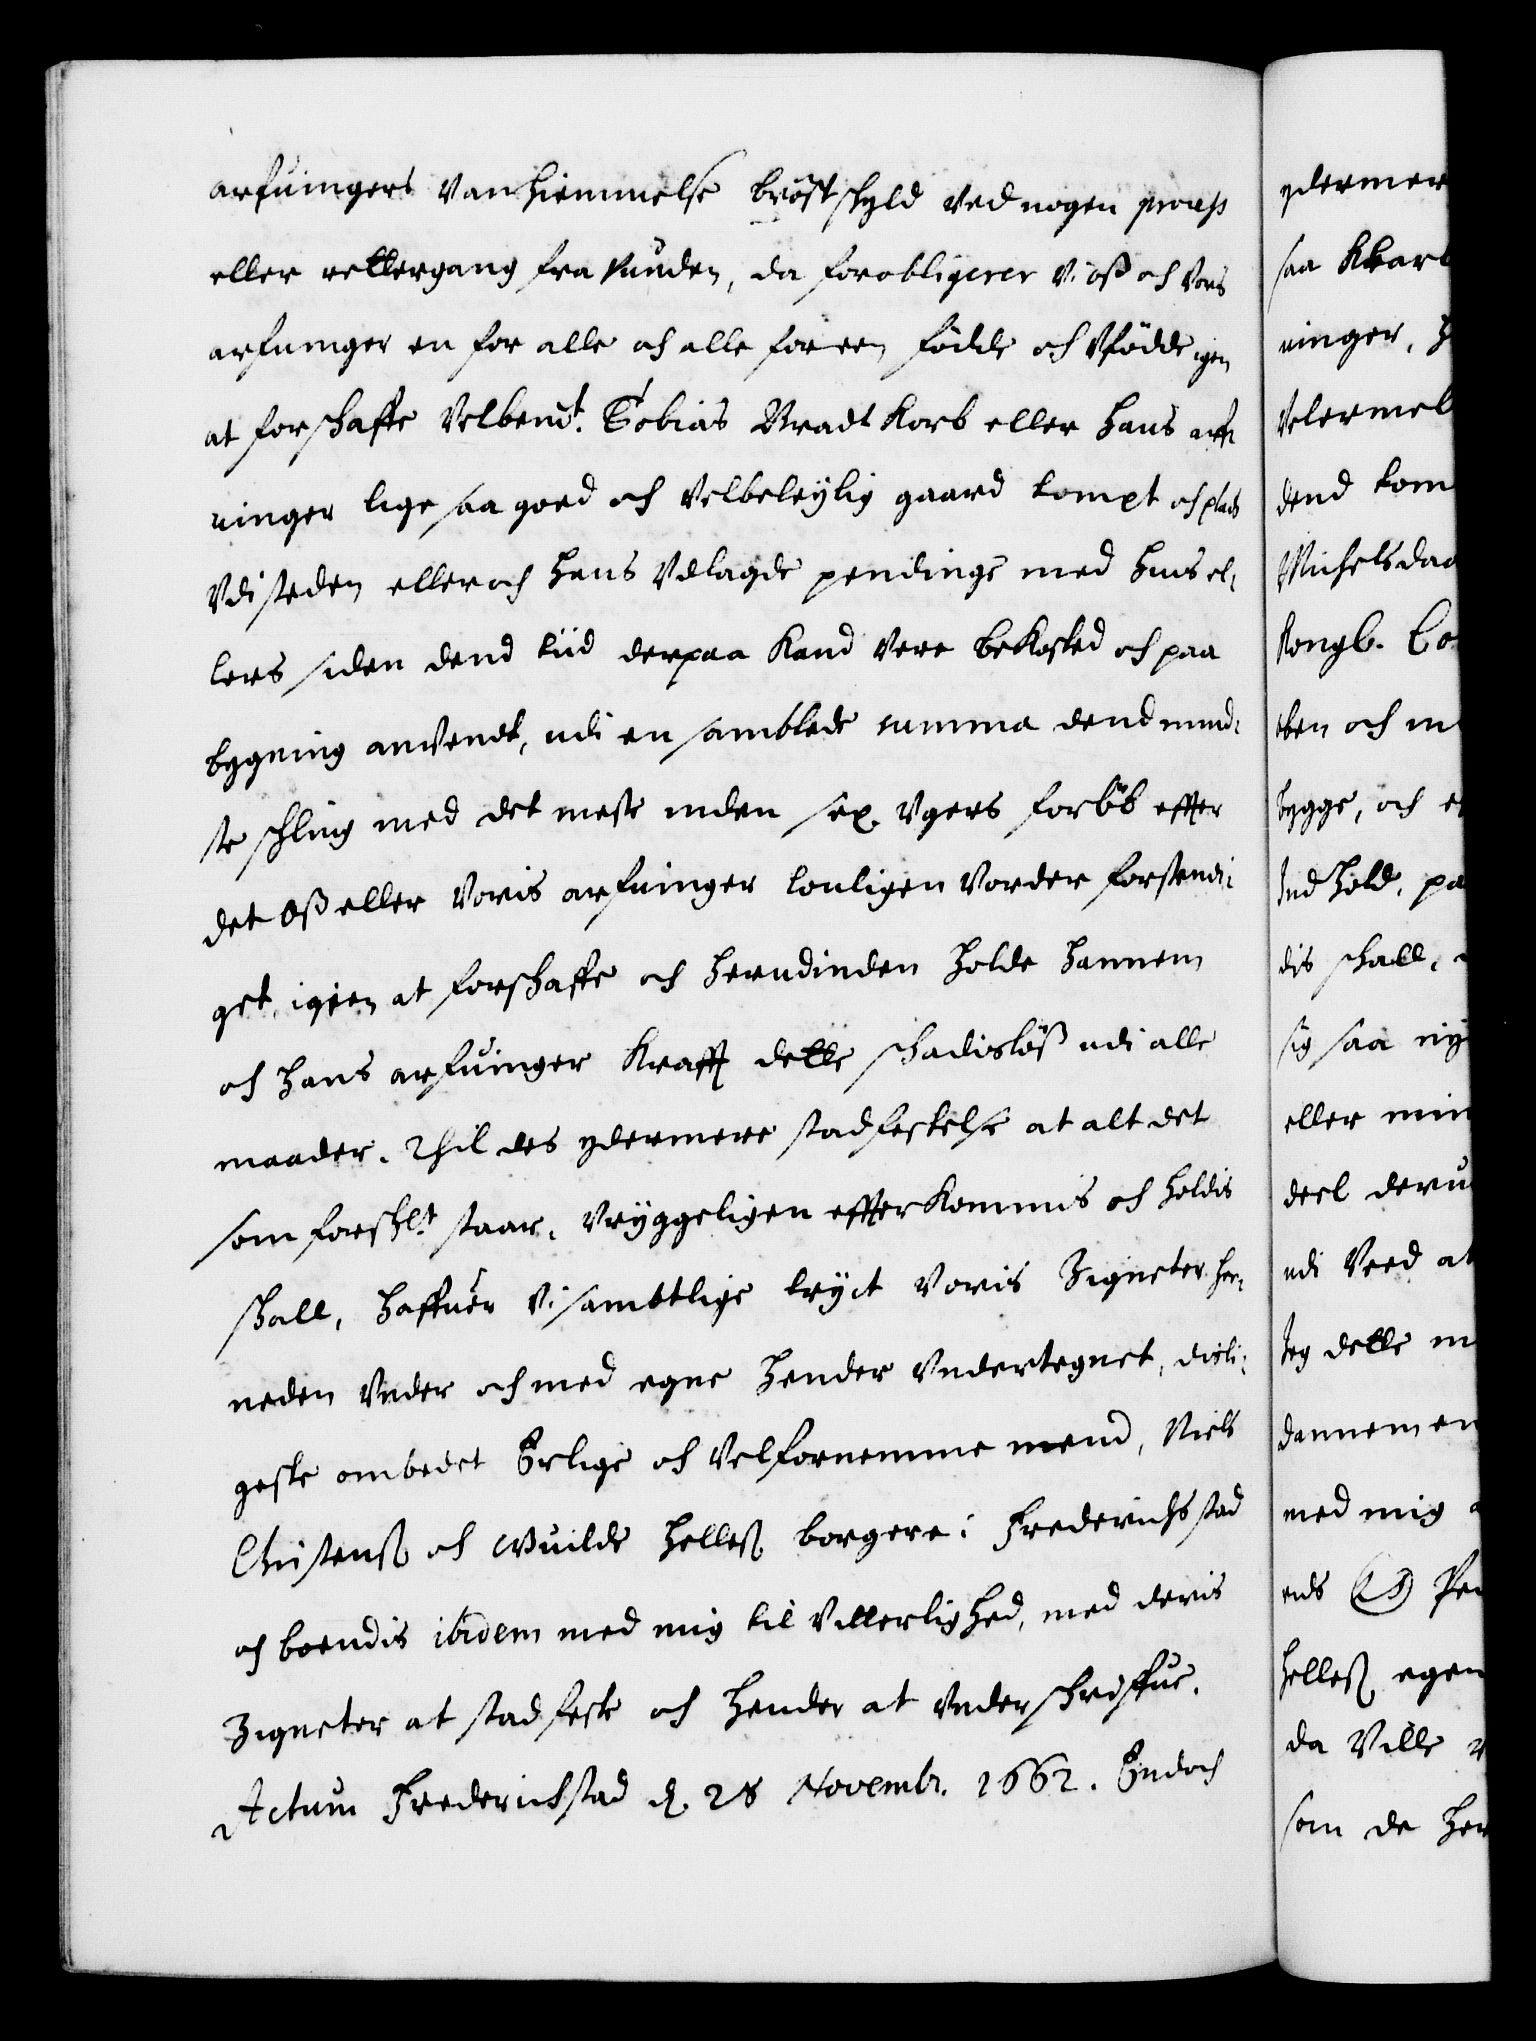 arfuingers Vanhiemmelse bröst skyld Ved nogen process
eller rettergang fra Vunden, da forobligerer Vi oss och Vors
arfuinger en for alle och alle for een födde och Vfödde igen
at forschaffe Velbemt. Tobias Bradt Korb eller Hans arff
uinger lige saa goed och Velbeleylig gaard tompt och plads
Vdi steden eller och Hans Vdlagde pendinge med Huis el,
lers siden dend tiid derpaa Kand Vere beKosted och paa
bygning anVendt, udi en samblede summa dend mind,
ste schling med det meste inden sex Vgers forlöb effter
det oss eller Voris arfuinger louligen Vorder forstendi,
get, igien at forschaffe och Herudinden Holde Hannem
och Hans arfuinger Krafft dette schadislöss udi alle
maader. Thil des ydermere stadfestelse at alt det
som forschl.t staar, Vryggeligen effterKommis och Holdis
schall, Haffuer Vi sambtlige tryct Voris Zigneter her,
neden Vnder och med egne Hender Vndertegnet, disli,
geste ombedet Erlige och Velfornemme mend, Niels
Christenss och Evuilde Helless borgere i Frederichsstad
och boendis ibidem med mig til Vitterlighed, med deris
Zigneter at stadfeste och Hender at Vnderschreffue.
Actum Frederichstad d. 28 Novembr. 1662. Endoch
ydermer
saa Kkarl
uinger, H
Velermel
dend tom
Michelsdag
Kongl. Co
ten och m
bygge, och e
Ind Hold, pa
dis schall,
sig saa ny
eller min
deel deru
udi Veed at
Jeg dette m
dannemen
med mig
eds (LS) Pe
Helless egen
da Ville
som de Her